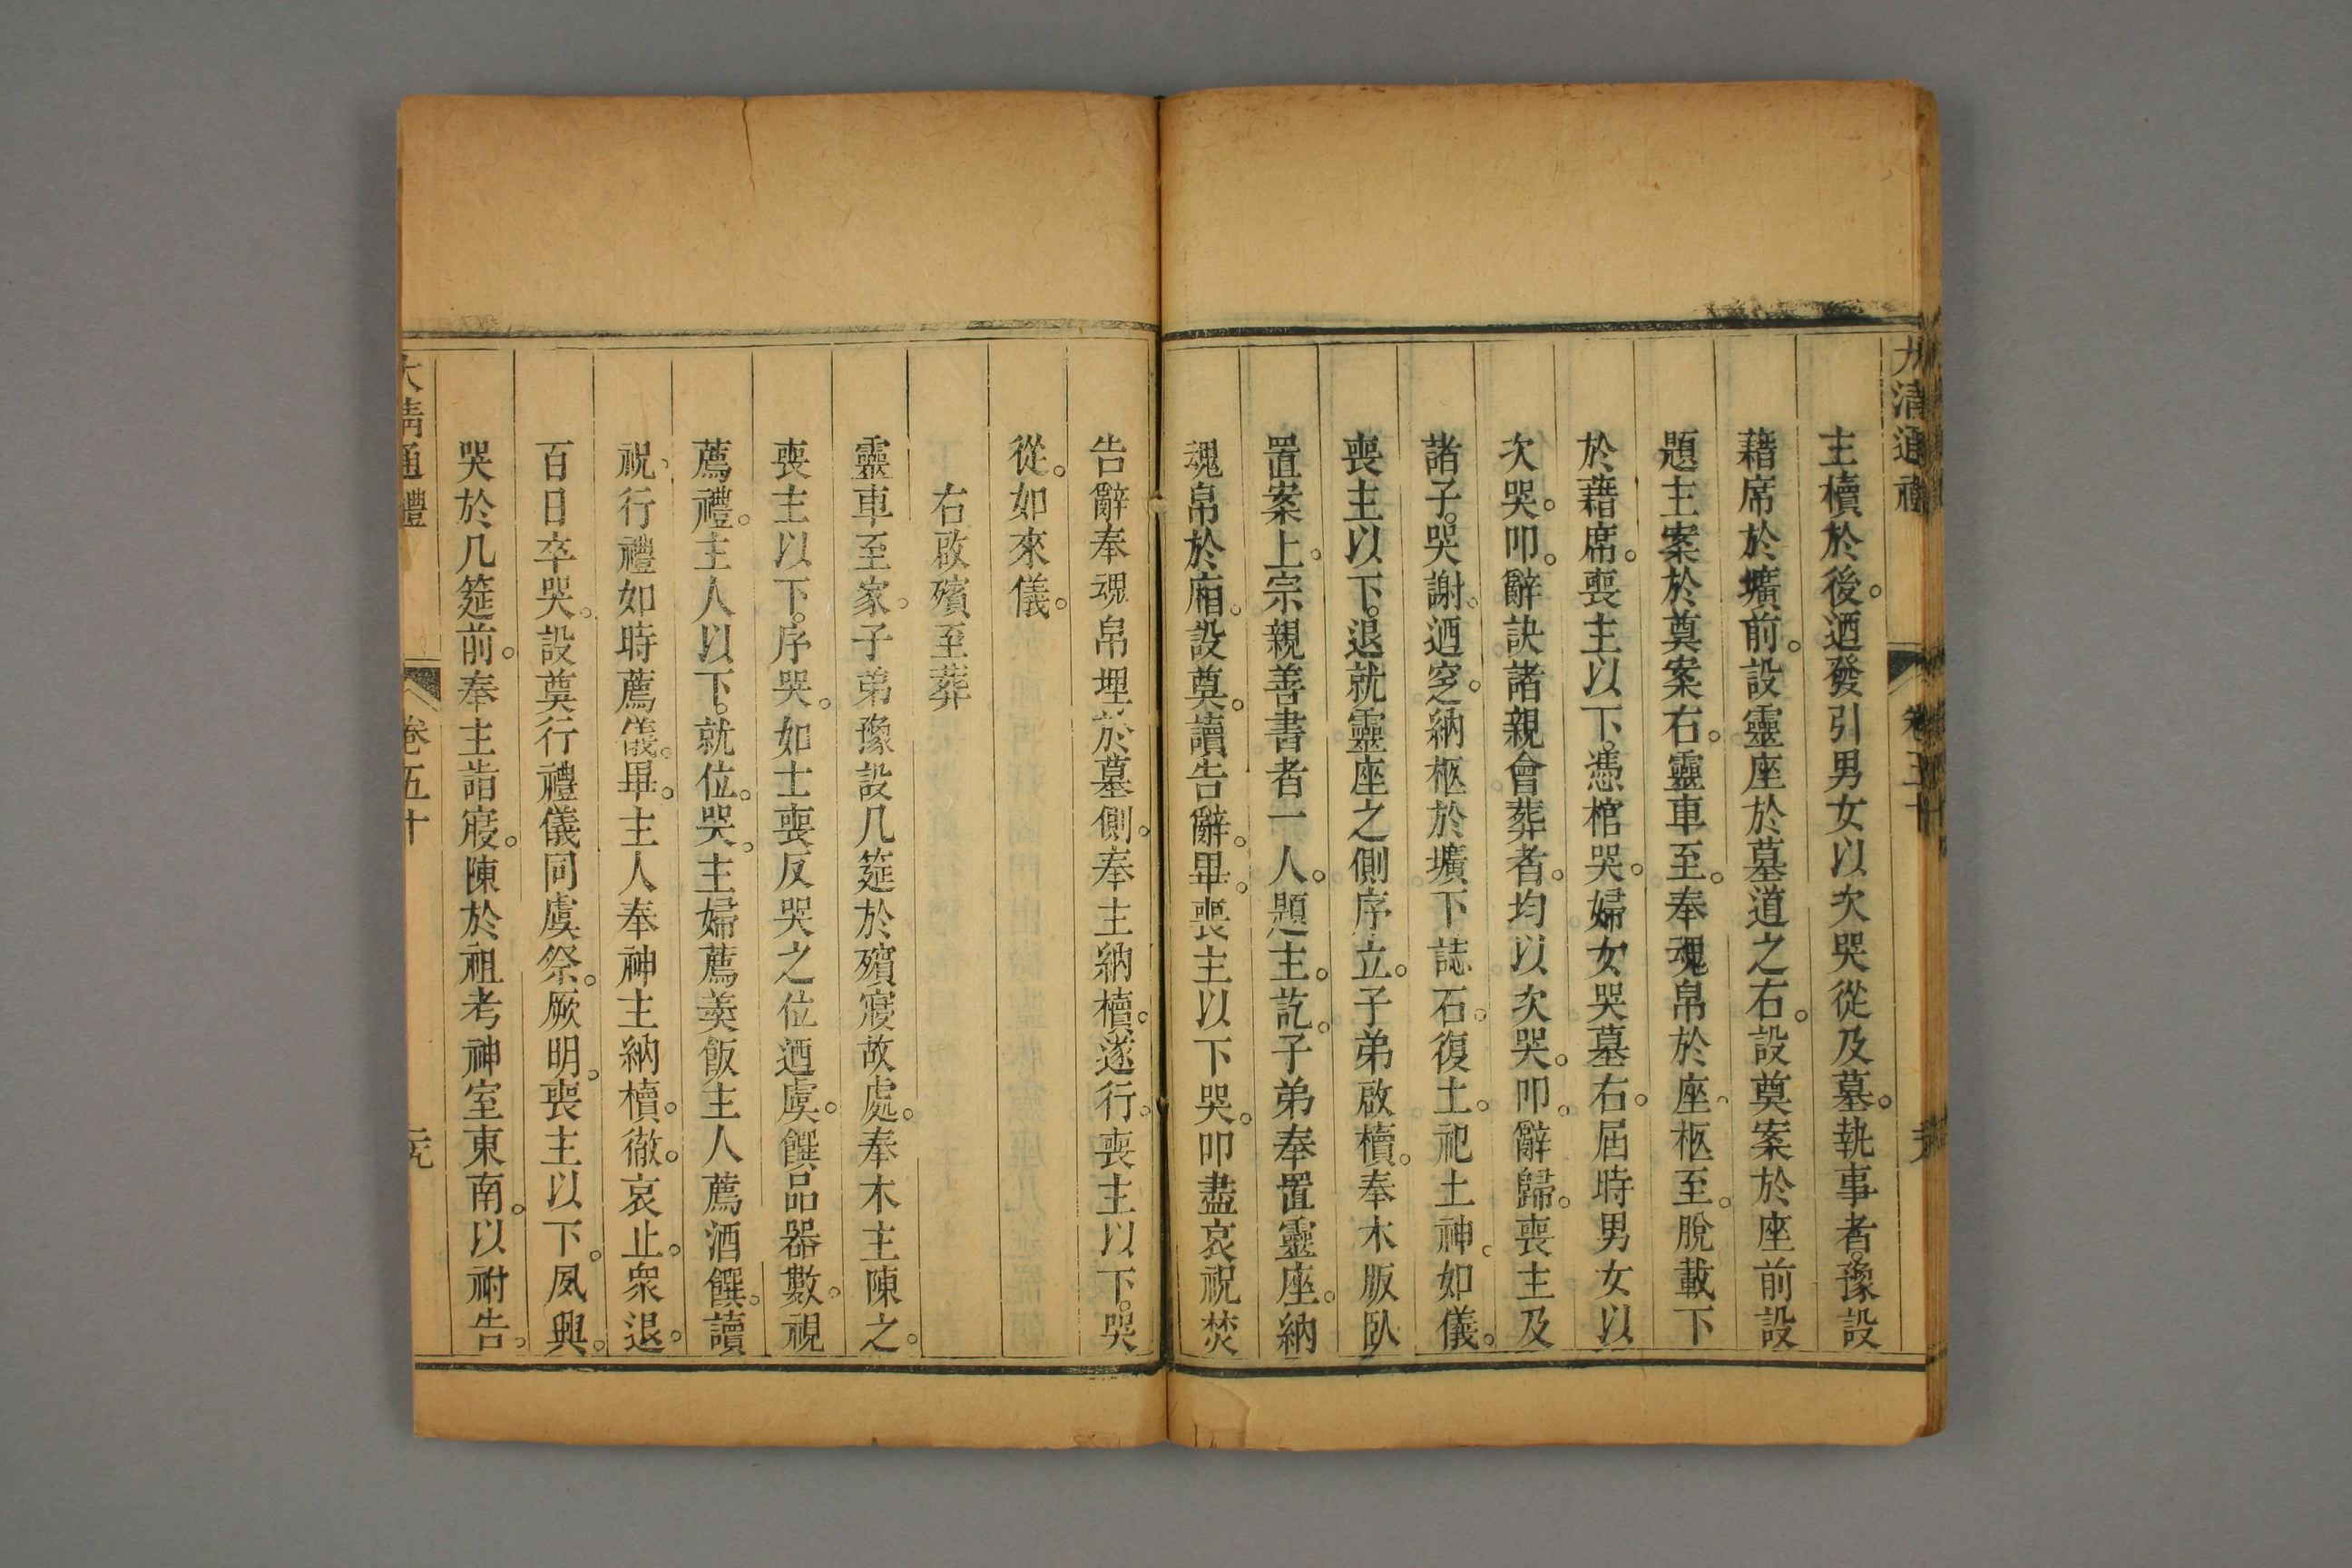 大清通禮 卷五十
主櫝於後。迺發引男女以次哭從及墓。執事者。豫設
藉席於壙前。設靈座於墓道之右。設奠案於座前設
題主案於奠案右。靈車至。奉魂帛於座。柩至。脫載下
於藉席。喪主以下。憑棺哭。婦女哭墓右。屆時男女以
次哭。叩。辭訣諸親會葬者。均以次哭。叩。辭歸。喪主及
諸子。哭謝。迺窆。納柩於壙下誌石。復土。祀土神。如儀。
喪主以下。退就靈座之側序立。子弟啟櫝。奉木版臥
置案上。宗親善書者一人。題主。訖。子弟奉置靈座。納
魂帛於廂。設奠。讀告辭。畢。喪主以下哭。叩盡哀祝焚
告辭奉魂帛埋於墓側。奉主納櫝。遂行。喪主以下。哭
從。如來儀。
右啟殯至葬
靈車至家。子弟豫設几筵於殯寢故處。奉木主陳之。
喪主以下。序哭。如士喪反哭之位迺虞。饌品器數。視
薦禮。主人以下。就位。哭。主婦薦羹飯主人薦酒饌。讀
祝。行禮如時薦儀。畢。主人奉神主納櫝。徹。哀止。衆退。
百日卒哭。設奠行禮儀同虞祭。厥明。喪主以下。夙興。
哭於几筵前。奉主詣寢。陳於祖考神室東南。以祔告。
大清通禮 卷五十